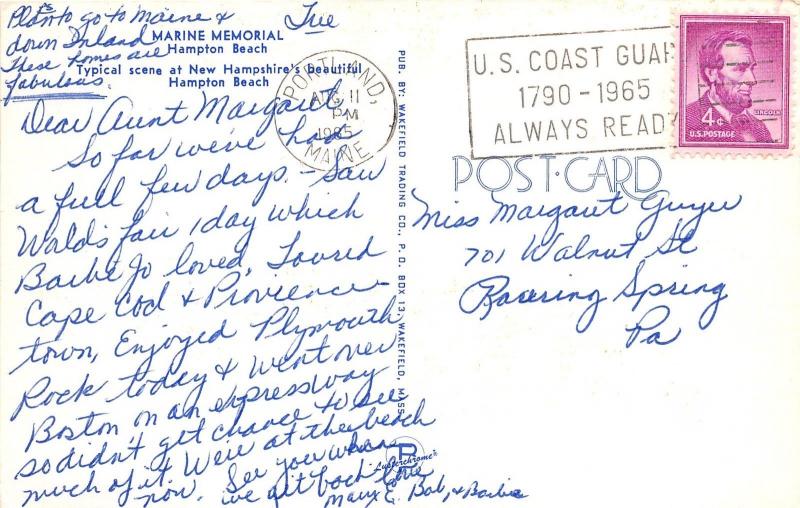 Plan to go to Maine &
down Inland
These homes are
fabulous.
Tue
MARINE MEMORIAL
Hampton Beach
Typical scene at New Hampshire's beautiful
Hampton Beach
Dear Aunt Margaret,
So far we've had
a full few days. - Saw
Worlds fair 1 day which
Barbe Jo loved, Toured
Cape Cod & Provience-
town, Enjoyed Plymouth
Rock today & went over
Boston on an expressway
so didn't get chance to see
much of it. We're at the beach
now. See you when
we get back Love
Mary E. Bob, & Barbie
PORTLAND,
AUG 11
PM
1965
MAINE
PUB. BY: WAKEFIELD TRADING CO., P.O. BOX 13, WAKEFIELD, MASS.
Lusterchrome
U.S. COAST GUAR
1790-1965
ALWAYS READY
4¢
LINCOLN
U.S. POSTAGE
POST CARD
Miss Margaret Guyer
701 Walnut St
Roaring Spring
Pa